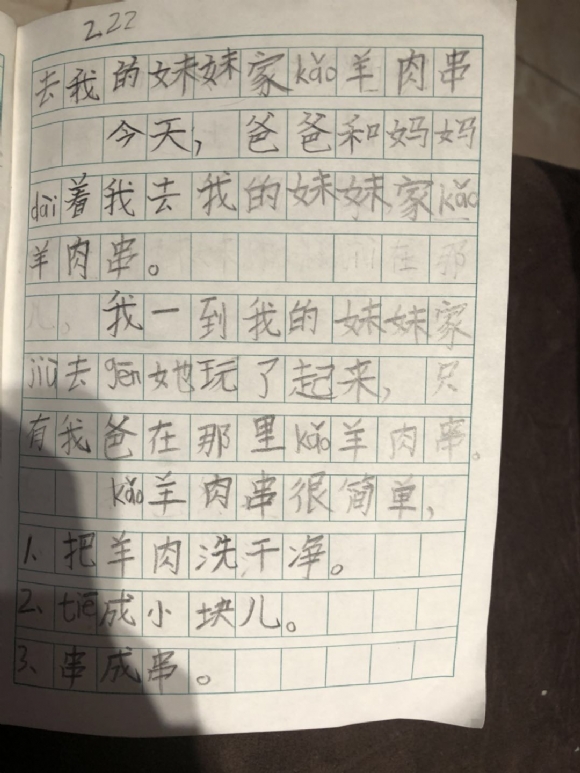 222
去我的妹妹家kǎo羊肉串
今天，爸爸和妈妈
dài着我去我的妹妹家kǎo
羊肉串。
我一到我的妹妹家
jiù去gēn她玩了起来，只
有我爸在那里kǎo羊肉串。
kǎo羊肉串很简单，
1、把羊肉洗干净。
2、tiē成小块儿。
3、串成串。